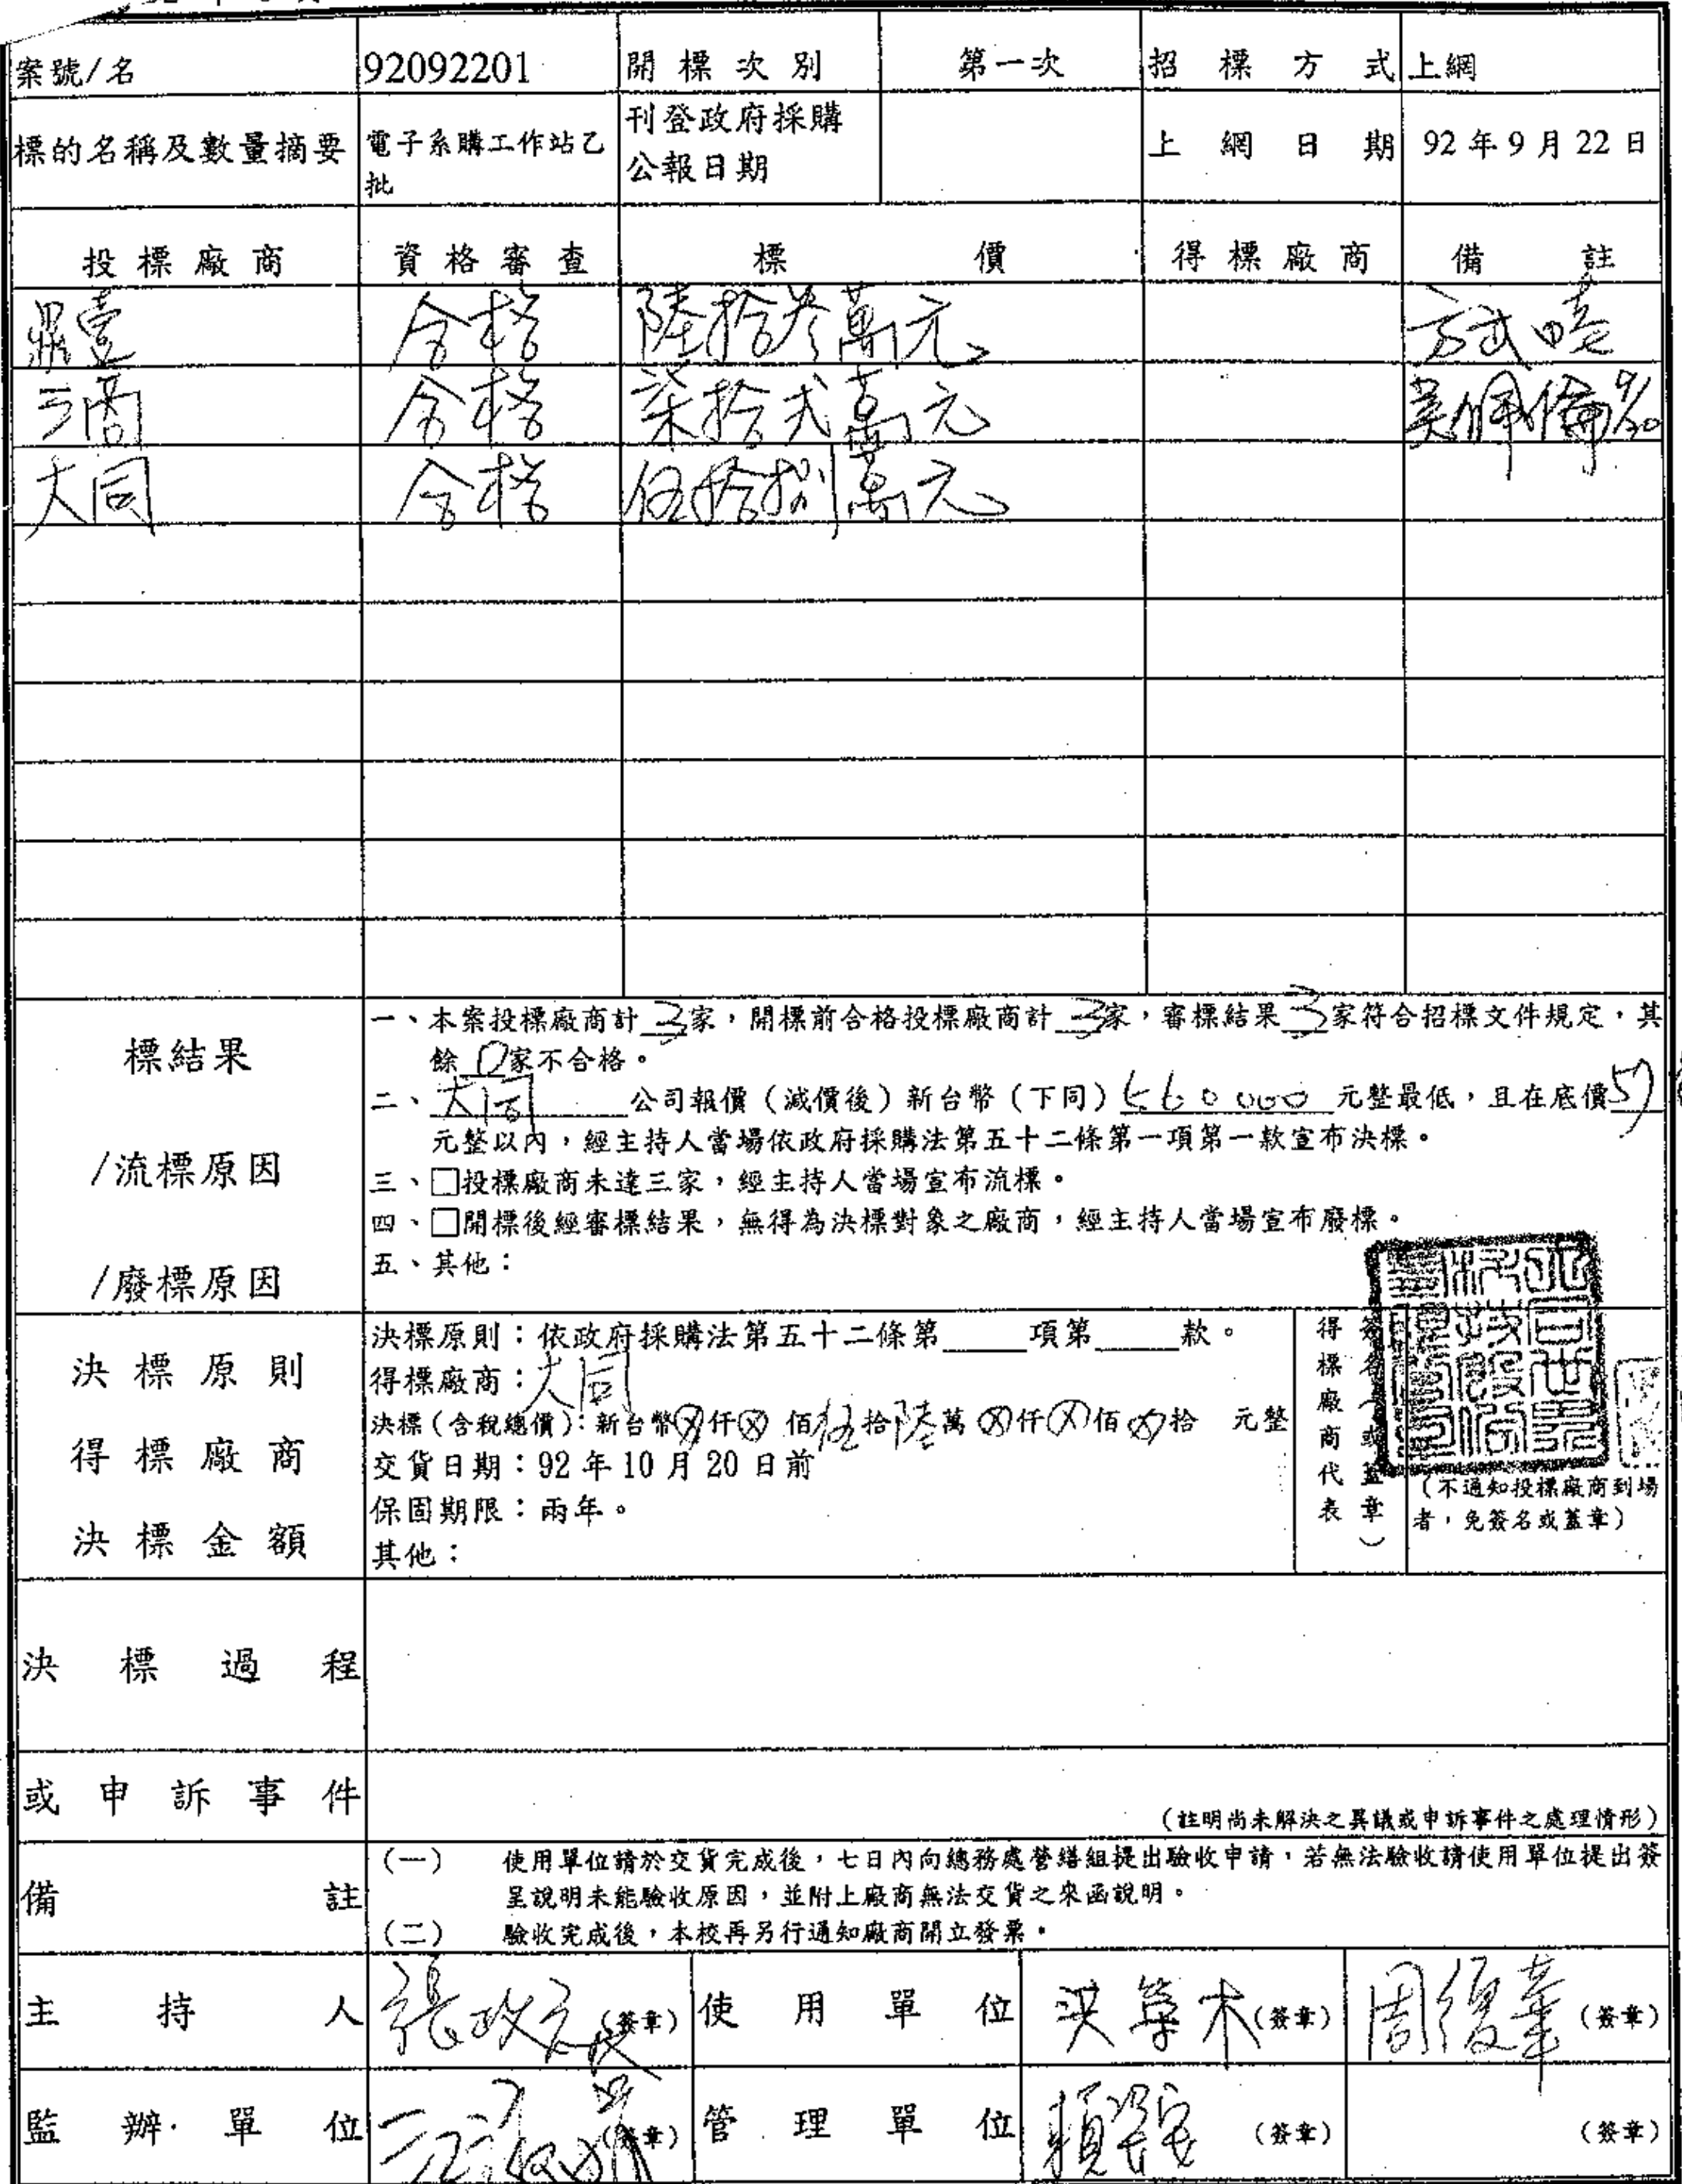 案號/名 92092201 開標次別 第一次 招標方式 上網
標的名稱及數量摘要 電子系購工作站乙批 刊登政府採購公報日期 上網日期 92年9月22日
投標廠商 資格審查 標價 得標廠商 備註
鼎壹 合格 陸拾叁萬元
三商 合格 柒拾弍萬元 吳佩倫 9/30
大同 合格 伍拾捌萬元
標結果
/流標原因
/廢標原因
一、本案投標廠商計 3 家,開標前合格投標廠商計 3 家,審標結果 3 家符合招標文件規定,其
餘 0 家不合格。
二、大同 公司報價(減價後)新台幣(下同)560000 元整最低,且在底價 57
元整以內,經主持人當場依政府採購法第五十二條第一項第一款宣布決標。
三、□投標廠商未達三家,經主持人當場宣布流標。
四、□開標後經審標結果,無得為決標對象之廠商,經主持人當場宣布廢標。
五、其他:
決標原則
得標廠商
決標金額
決標原則:依政府採購法第五十二條第____項第____款。
得標廠商:大同
決標(含稅總價):新台幣ⓧ仟ⓧ佰伍拾陸萬ⓧ仟ⓧ佰ⓧ拾 元整
交貨日期:92年10月20日前
保固期限:兩年。
其他:
得標廠商代表
簽名(或蓋章)
(不通知投標廠商到場
者,免簽名或蓋章)
決標過程
或申訴事件
(註明尚未解決之異議或申訴事件之處理情形)
備註
(一) 使用單位請於交貨完成後,七日內向總務處營繕組提出驗收申請,若無法驗收請使用單位提出簽
呈說明未能驗收原因,並附上廠商無法交貨之來函說明。
(二) 驗收完成後,本校再另行通知廠商開立發票。
主持人 張政 (簽章) 使用單位 洪 木 (簽章) 周復華 (簽章)
監辦單位 (簽章) 管理單位 賴 (簽章) (簽章)